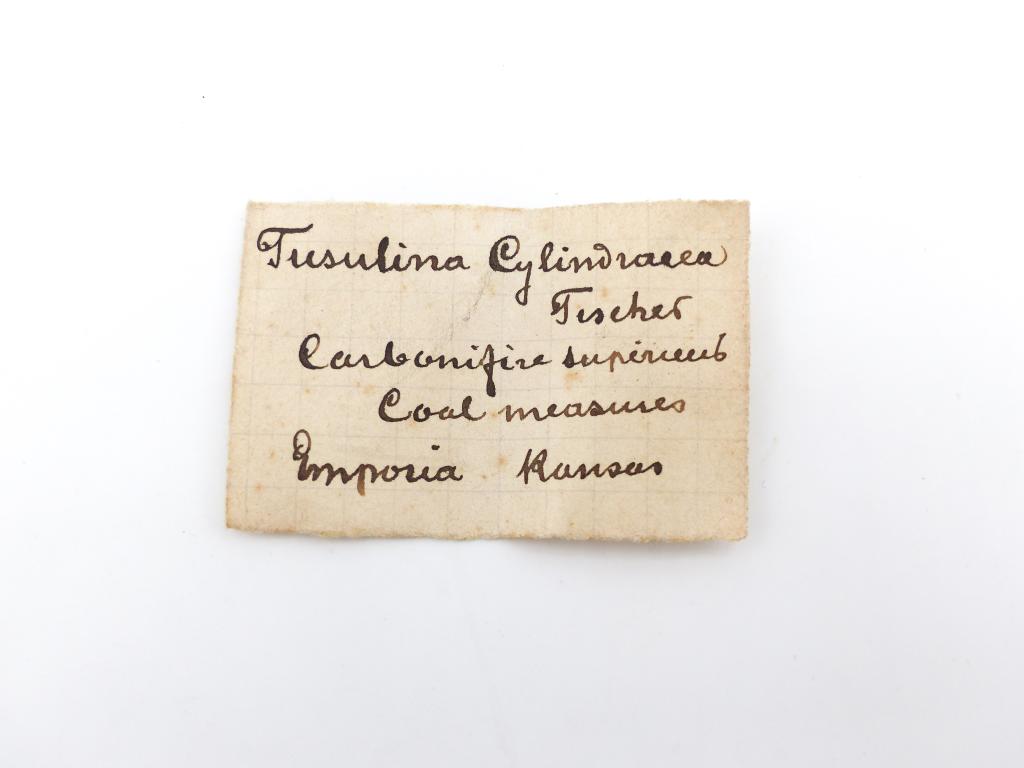 Fusulina Cylindracea
Fischer
Carbonifire supérieur
Coal measures
Emporia Kansas